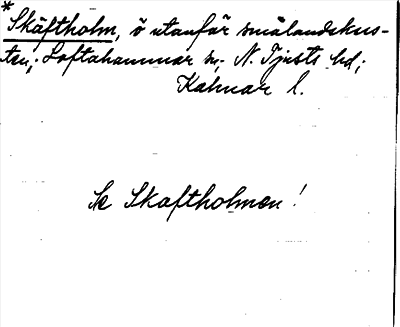 *Skäftholm, ö utanför smålandskus-
ten; Loftahammar sn; N. Tjusts hd;
Kalmar l.
Se Skaftholmen!